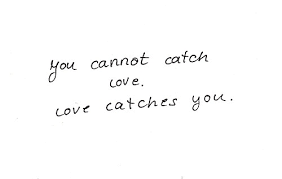 you cannot catch
love.
love catches you.